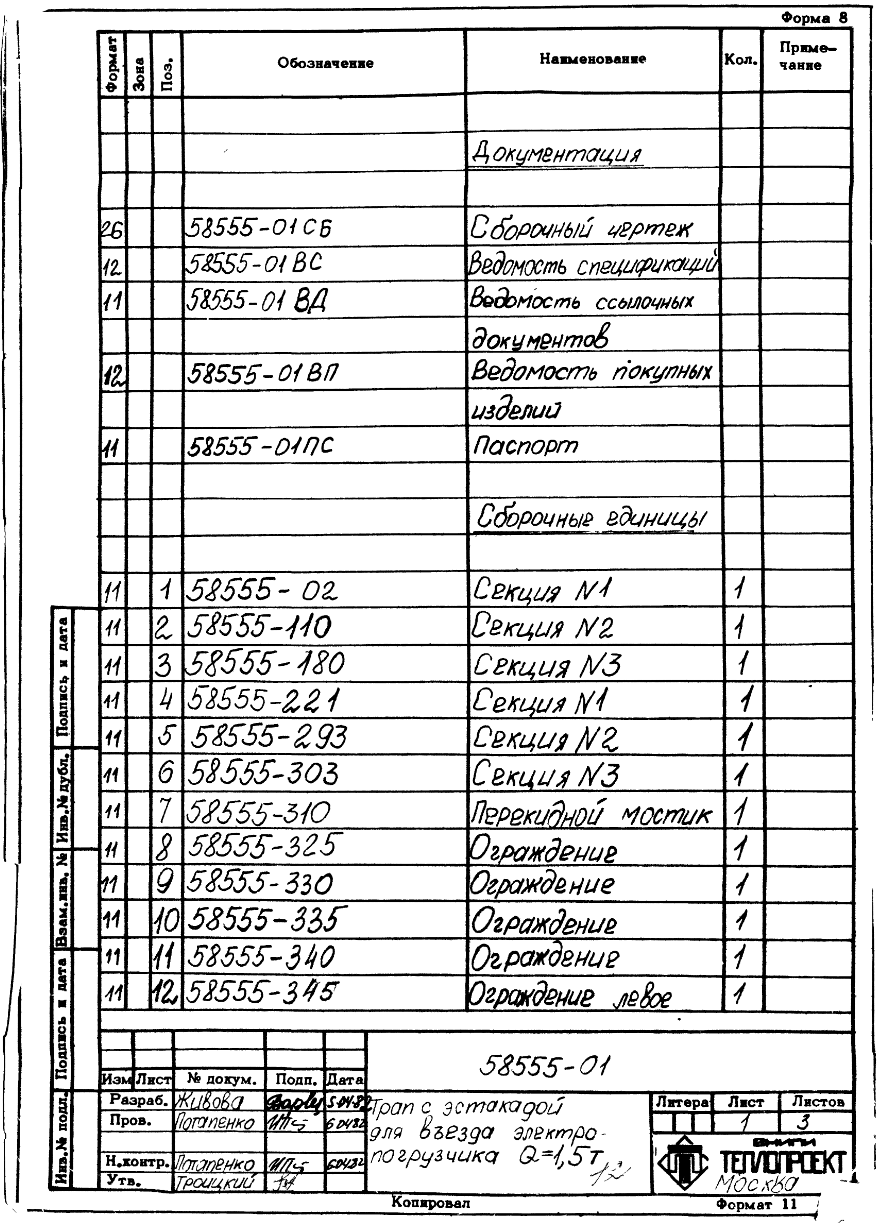 Форма 8
Формат Зона Поз. Обозначение Наименование Кол. Приме-
чание
Документация
26 58555-01 СБ Сборочный чертеж
12 58555-01 ВС Ведомость спецификаций
11 58555-01 ВД Ведомость ссылочных
документов
12 58555-01 ВП Ведомость покупных
изделий
11 58555-01ПС Паспорт
Сборочные единицы
11 1 58555-02 Секция N1 1
11 2 58555-110 Секция N2 1
11 3 58555-180 Секция N3 1
11 4 58555-221 Секция N1 1
11 5 58555-293 Секция N2 1
11 6 58555-303 Секция N3 1
11 7 58555-310 Перекидной мостик 1
11 8 58555-325 Ограждение 1
11 9 58555-330 Ограждение 1
11 10 58555-335 Ограждение 1
11 11 58555-340 Ограждение 1
11 12 58555-345 Ограждение левое 1
Подпись и дата
Инв.№ дубл.
Взам.инв.№
Подпись и дата
Инв.№ подл.
58555-01
Изм Лист № докум. Подп. Дата
Разраб. Живова 5.04.82
Пров. Потапенко 6.04.82
Н.контр. Потапенко 6.04.82
Утв. Троицкий
Трап с эстакадой
для въезда электро-
погрузчика Q=1,5т
12
Литера Лист Листов
1 3
ВНИПИ
ТЕПЛОПРОЕКТ
Москва
Копировал Формат 11